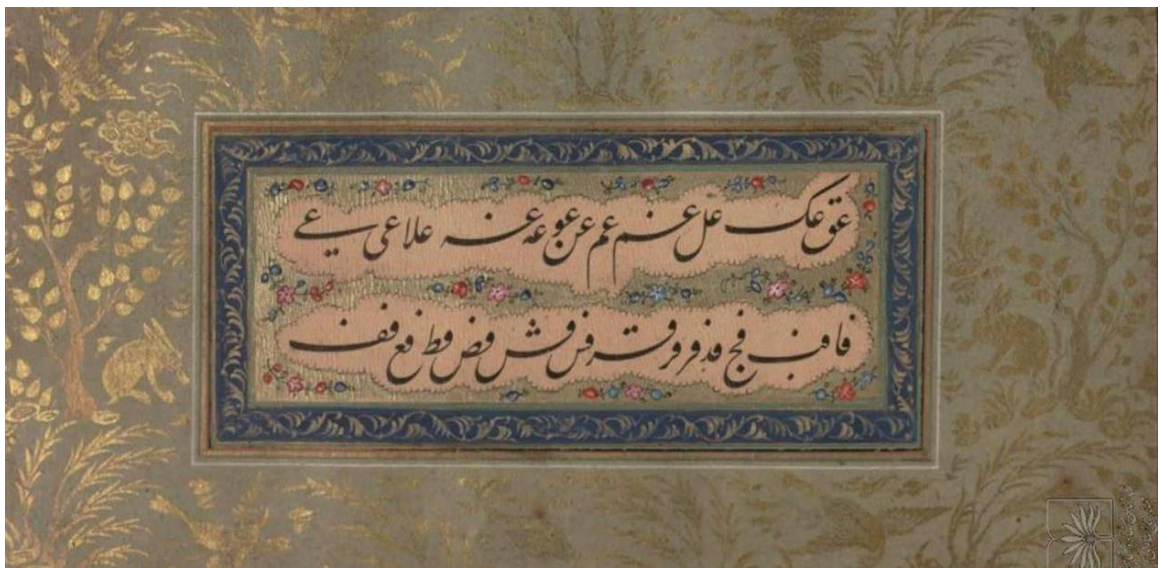 عق عک عل عم عم عن عو عه عه علا عی عے
فا فب فج فد فر فر فس فش فص فط فع فف